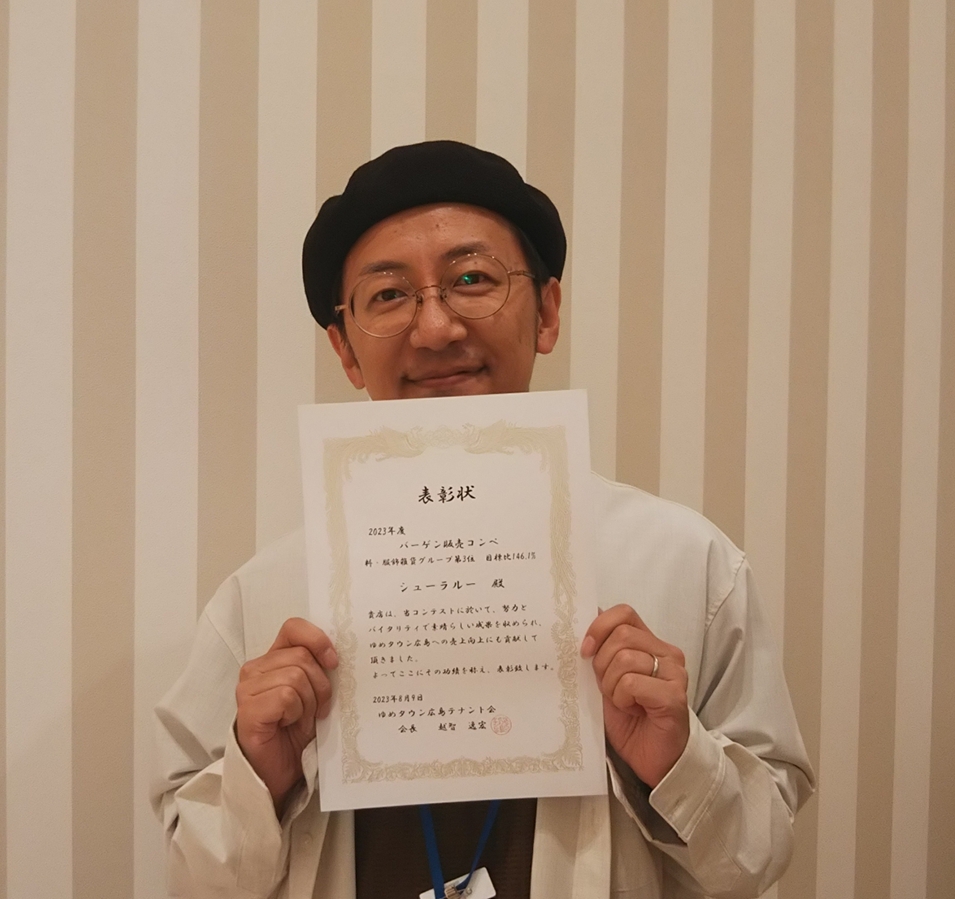 表彰状
2023年度
バーゲン販売コンペ
料・服飾雑貨グループ第3位 目標比146.1%
シューラルー 殿
貴店は、当コンテストに於いて、努力と
バイタリティで素晴らしい成果を収められ、
ゆめタウン広島への売上向上にも貢献して
頂きました。
よってここにその功績を称え、表彰致します。
2023年8月9日
ゆめタウン広島テナント会
会長 越智 逸宏